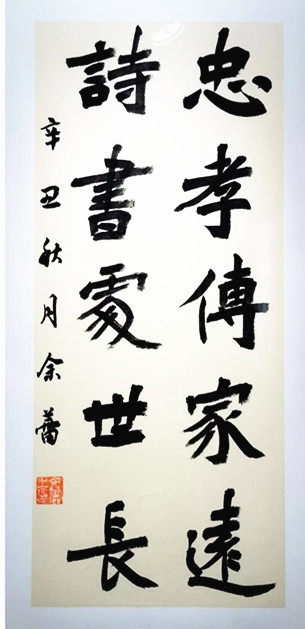 忠孝傳家遠
詩書處世長
辛丑秋月余蕾